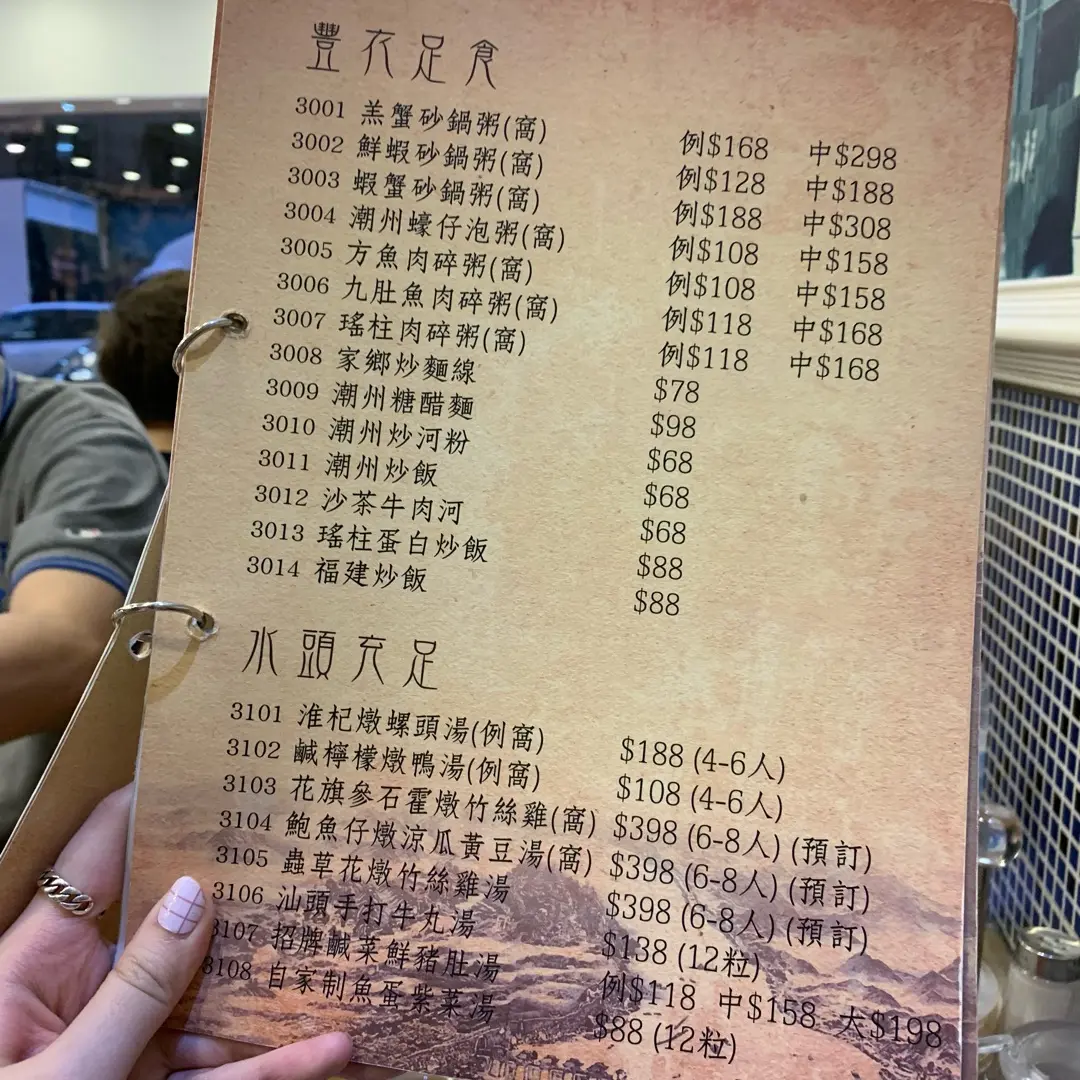 豐衣足食
3001 羔蟹砂鍋粥(窩) 例$168 中$298
3002 鮮蝦砂鍋粥(窩) 例$128 中$188
3003 蝦蟹砂鍋粥(窩) 例$188 中$308
3004 潮州蠔仔泡粥(窩) 例$108 中$158
3005 方魚肉碎粥(窩) 例$108 中$158
3006 九肚魚肉碎粥(窩) 例$118 中$168
3007 瑤柱肉碎粥(窩) 例$118 中$168
3008 家鄉炒麵線 $78
3009 潮州糖醋麵 $98
3010 潮州炒河粉 $68
3011 潮州炒飯 $68
3012 沙茶牛肉河 $68
3013 瑤柱蛋白炒飯 $88
3014 福建炒飯 $88
水頭充足
3101 淮杞燉螺頭湯(例窩) $188 (4-6人)
3102 鹹檸檬燉鴨湯(例窩) $108 (4-6人)
3103 花旗參石霍燉竹絲雞(窩) $398 (6-8人) (預訂)
3104 鮑魚仔燉涼瓜黃豆湯(窩) $398 (6-8人) (預訂)
3105 蟲草花燉竹絲雞湯 $398 (6-8人) (預訂)
3106 汕頭手打牛丸湯 $138 (12粒)
3107 招牌鹹菜鮮豬肚湯 例$118 中$158 大$198
3108 自家制魚蛋紫菜湯 $88 (12粒)